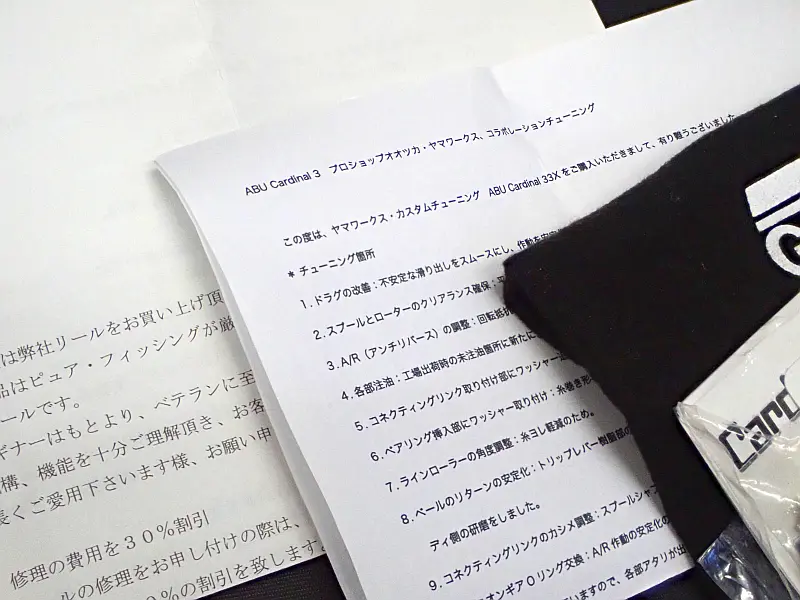 ABU Cardinal 3 プロショップオオツカ・ヤマワークス、コラボレーションチューニング
この度は、ヤマワークス・カスタムチューニング ABU Cardinal 33X をご購入いただきまして、有り難うございました
* チューニング箇所
1. ドラグの改善:不安定な滑り出しをスムースにし、作動を安定
2. スプールとローターのクリアランス確保:
3. A/R(アンチリバース)の調整:回転抵抗
4. 各部注油:工場出荷時の未注油箇所に新たに
5. コネクティングリンク取り付け部にワッシャー
6. ベアリング挿入部にワッシャー取り付け:糸巻き形
7. ラインローラーの角度調整:糸ヨレ軽減のため。
8. ベールのリターンの安定化:トリップレバー樹脂部の
ディ側の研磨をしました。
9. コネクティングリンクのカシメ調整:スプールシャフ
オンギア O リング交換:A/R 作動の安定化の
いますので、各部アタリが出
は弊社リールをお買い上げ頂
品はピュア・フィッシングが厳
ールです。
ギナーはもとより、ベテランに至
構、機能を十分ご理解頂き、お客
長くご愛用下さいます様、お願い申
修理の費用を30%割引
ルの修理をお申し付けの際は、
0%の割引を致します
Card